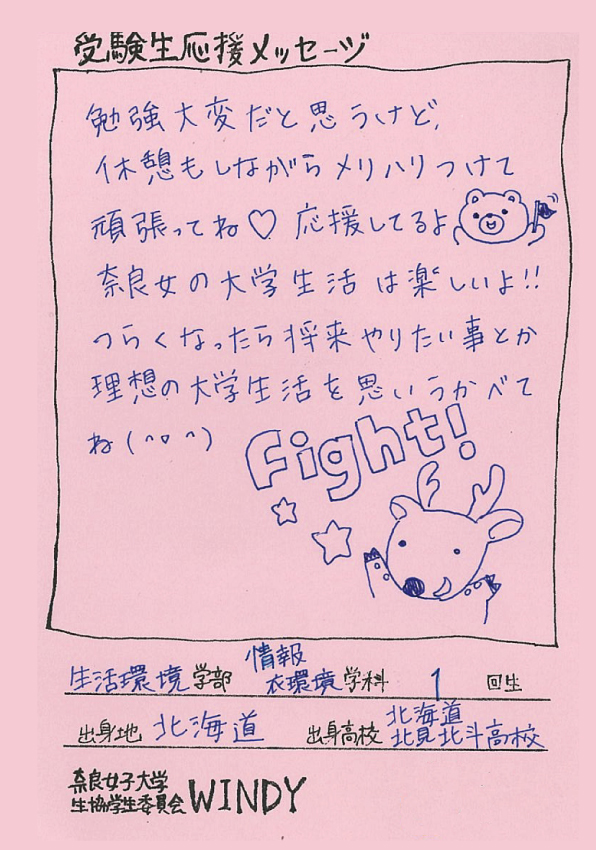 受験生応援メッセージ
勉強大変だと思うけど、
休憩もしながらメリハリつけて
頑張ってね♡ 応援してるよ
奈良女の大学生活は楽しいよ!!
つらくなったら将来やりたい事とか
理想の大学生活を思いうかべて
ね(^o^)
Fight!
生活環境学部 情報衣環境学科 1 回生
出身地 北海道 出身高校 北海道北見北斗高校
奈良女子大学
生協学生委員会 WINDY